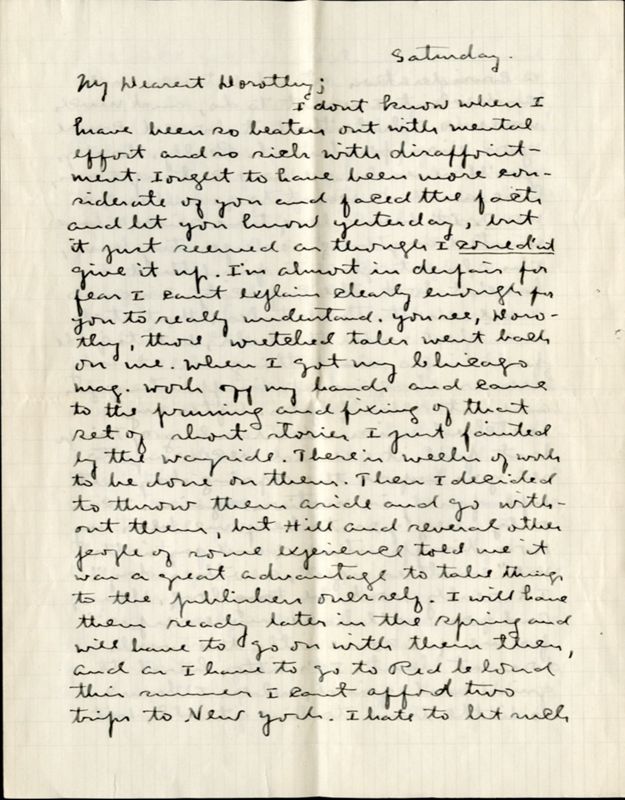 Saturday.
My Dearest Dorothy;
I dont know when I
have been so beaten out with mental
effort and so sick with disappoint-
ment. I ought to have been more con-
siderate of you and faced the facts
and let you know yesterday, but
it just seemed as though I could'nt
give it up. I'm almost in despair for
fear I cant explain clearly enough for
you to really understand. you see, Doro-
thy, those wretched tales went back
on me. When I got my Chicago
mag. work off my hands and came
to the pruning and fixing of that
set of short stories I just fainted
by the wayside. There's weeks of work
to be done on them. Then I decided
to throw them aside and go with-
out them, but Hill and several other
people of some experience told me it
was a great advantage to take things
to the publishers oneself. I will have
them ready later in the spring and
will have to go on with them then,
and as I have to go to Red Cloud
this summer I cant afford two
trips to New York. I hate to let such